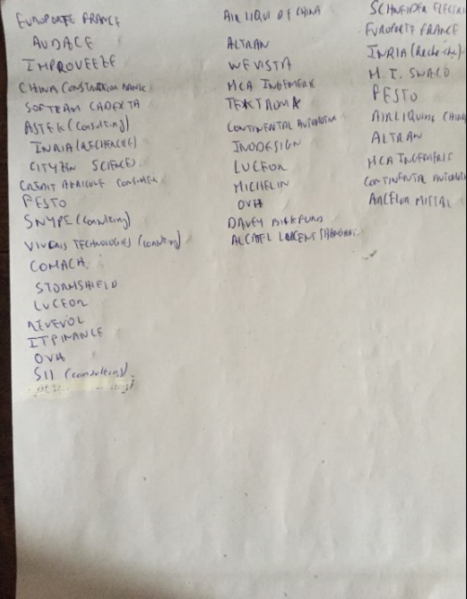 EUROPORTE FRANCE
AUDACE
IMPROVEEZE
CHINA CONSTRUCTION BANK
SOFTEAM CADEXTA
ASTEK (consulting)
INRIA (RECHERCHE)
CITYZEN SCIENCES
CREDIT AGRICOLE CONSUMER
FESTO
SNYPE (consulting)
VIVERIS TECHNOLOGIES (consulting)
COMACH
STORMSHIELD
LUCEOR
ITFINANCE
OVH
SII (consulting)
AIR LIQUIDE CHINA
ALTRAN
WEVISTA
MCA INGENIERIE
CONTINENTAL AUTOMOTIVE
INODESIGN
LUCEOR
MICHELIN
OVH
DAVEY BICKFORD
ALCATEL LUCENT SHANGHAI
SCHNEIDER ELECTRI
EUROPORTE FRANCE
INRIA (Recherche)
M.I. SWACO
FESTO
AIR LIQUIDE CHINA
ALTRAN
MCA INGENIERIE
CONTINENTAL AUTOMOTIV
ARCELOR MITTAL